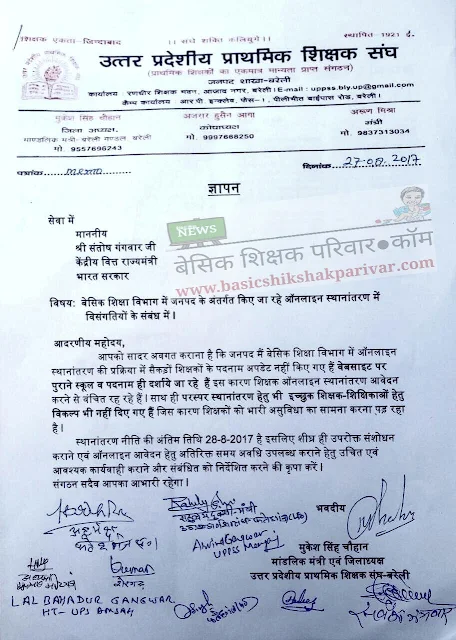 शिक्षक एकता-जिन्दाबाद ।। संघे शक्ति कलियुगे।। स्थापित-1921 ई.
उत्तर प्रदेशीय प्राथमिक शिक्षक संघ
(प्राथमिक शिक्षकों का एकमात्र मान्यता प्राप्त संगठन)
जनपद शाखा-बरेली
कार्यालय रणधीर शिक्षक भवन, आजाद नगर, बरेली। E-mail : uppss.bly.up@gmail.com
कैम्प कार्यालय आर.पी. इन्कलेव, फेस-1, पीलीभीत बाईपास रोड, बरेली।
मुकेश सिंह चौहान
जिला अध्यक्ष,
माण्डलिक मंत्री-बरेली मण्डल बरेली
मो. 9557696243
अजरार हुसैन आगा
कोषाध्यक्ष
मो. 9997668250
अरूण मिश्रा
मंत्री
मो. 9837313034
पत्रांक
दिनांक 27-08-2017
ज्ञापन
NEWS
बेसिक शिक्षक परिवार●कॉम
www.basicshikshakparivar.com
सेवा में
माननीय
श्री संतोष गंगवार जी
केंद्रीय वित्त राज्यमंत्री
भारत सरकार
विषय: बेसिक शिक्षा विभाग में जनपद के अंतर्गत किए जा रहे ऑनलाइन स्थानांतरण में
विसंगतियों के संबंध में।
आदरणीय महोदय,
आपको सादर अवगत कराना है कि जनपद मैं बेसिक शिक्षा विभाग में ऑनलाइन
स्थानांतरण की प्रक्रिया में सैकड़ों शिक्षकों के पदनाम अपडेट नहीं किए गए हैं वेबसाइट पर
पुराने स्कूल व पदनाम ही दर्शाये जा रहे हैं इस कारण शिक्षक ऑनलाइन स्थानांतरण आवेदन
करने से वंचित रह रहे हैं। साथ ही परस्पर स्थानांतरण हेतु भी इच्छुक शिक्षक-शिक्षिकाओं हेतु
विकल्प भी नहीं दिए गए हैं जिस कारण शिक्षकों को भारी असुविधा का सामना करना पड़ रहा
है।
स्थानांतरण नीति की अंतिम तिथि 28-8-2017 है इसलिए शीघ्र ही उपरोक्त संशोधन
कराने एवं ऑनलाइन आवेदन हेतु अतिरिक्त समय अवधि उपलब्ध कराने हेतु उचित एवं
आवश्यक कार्यवाही कराने और संबंधित को निर्देशित करने की कृपा करें।
संगठन सदैव आपका आभारी रहेगा।
भवदीय
मुकेश सिंह चौहान
मांडलिक मंत्री एवं जिलाध्यक्ष
उत्तर प्रदेशीय प्राथमिक शिक्षक संघ-बरेली
Arvind Gangwar
UPPSS
LAL BAHADUR GANGWAR
HT- UPS